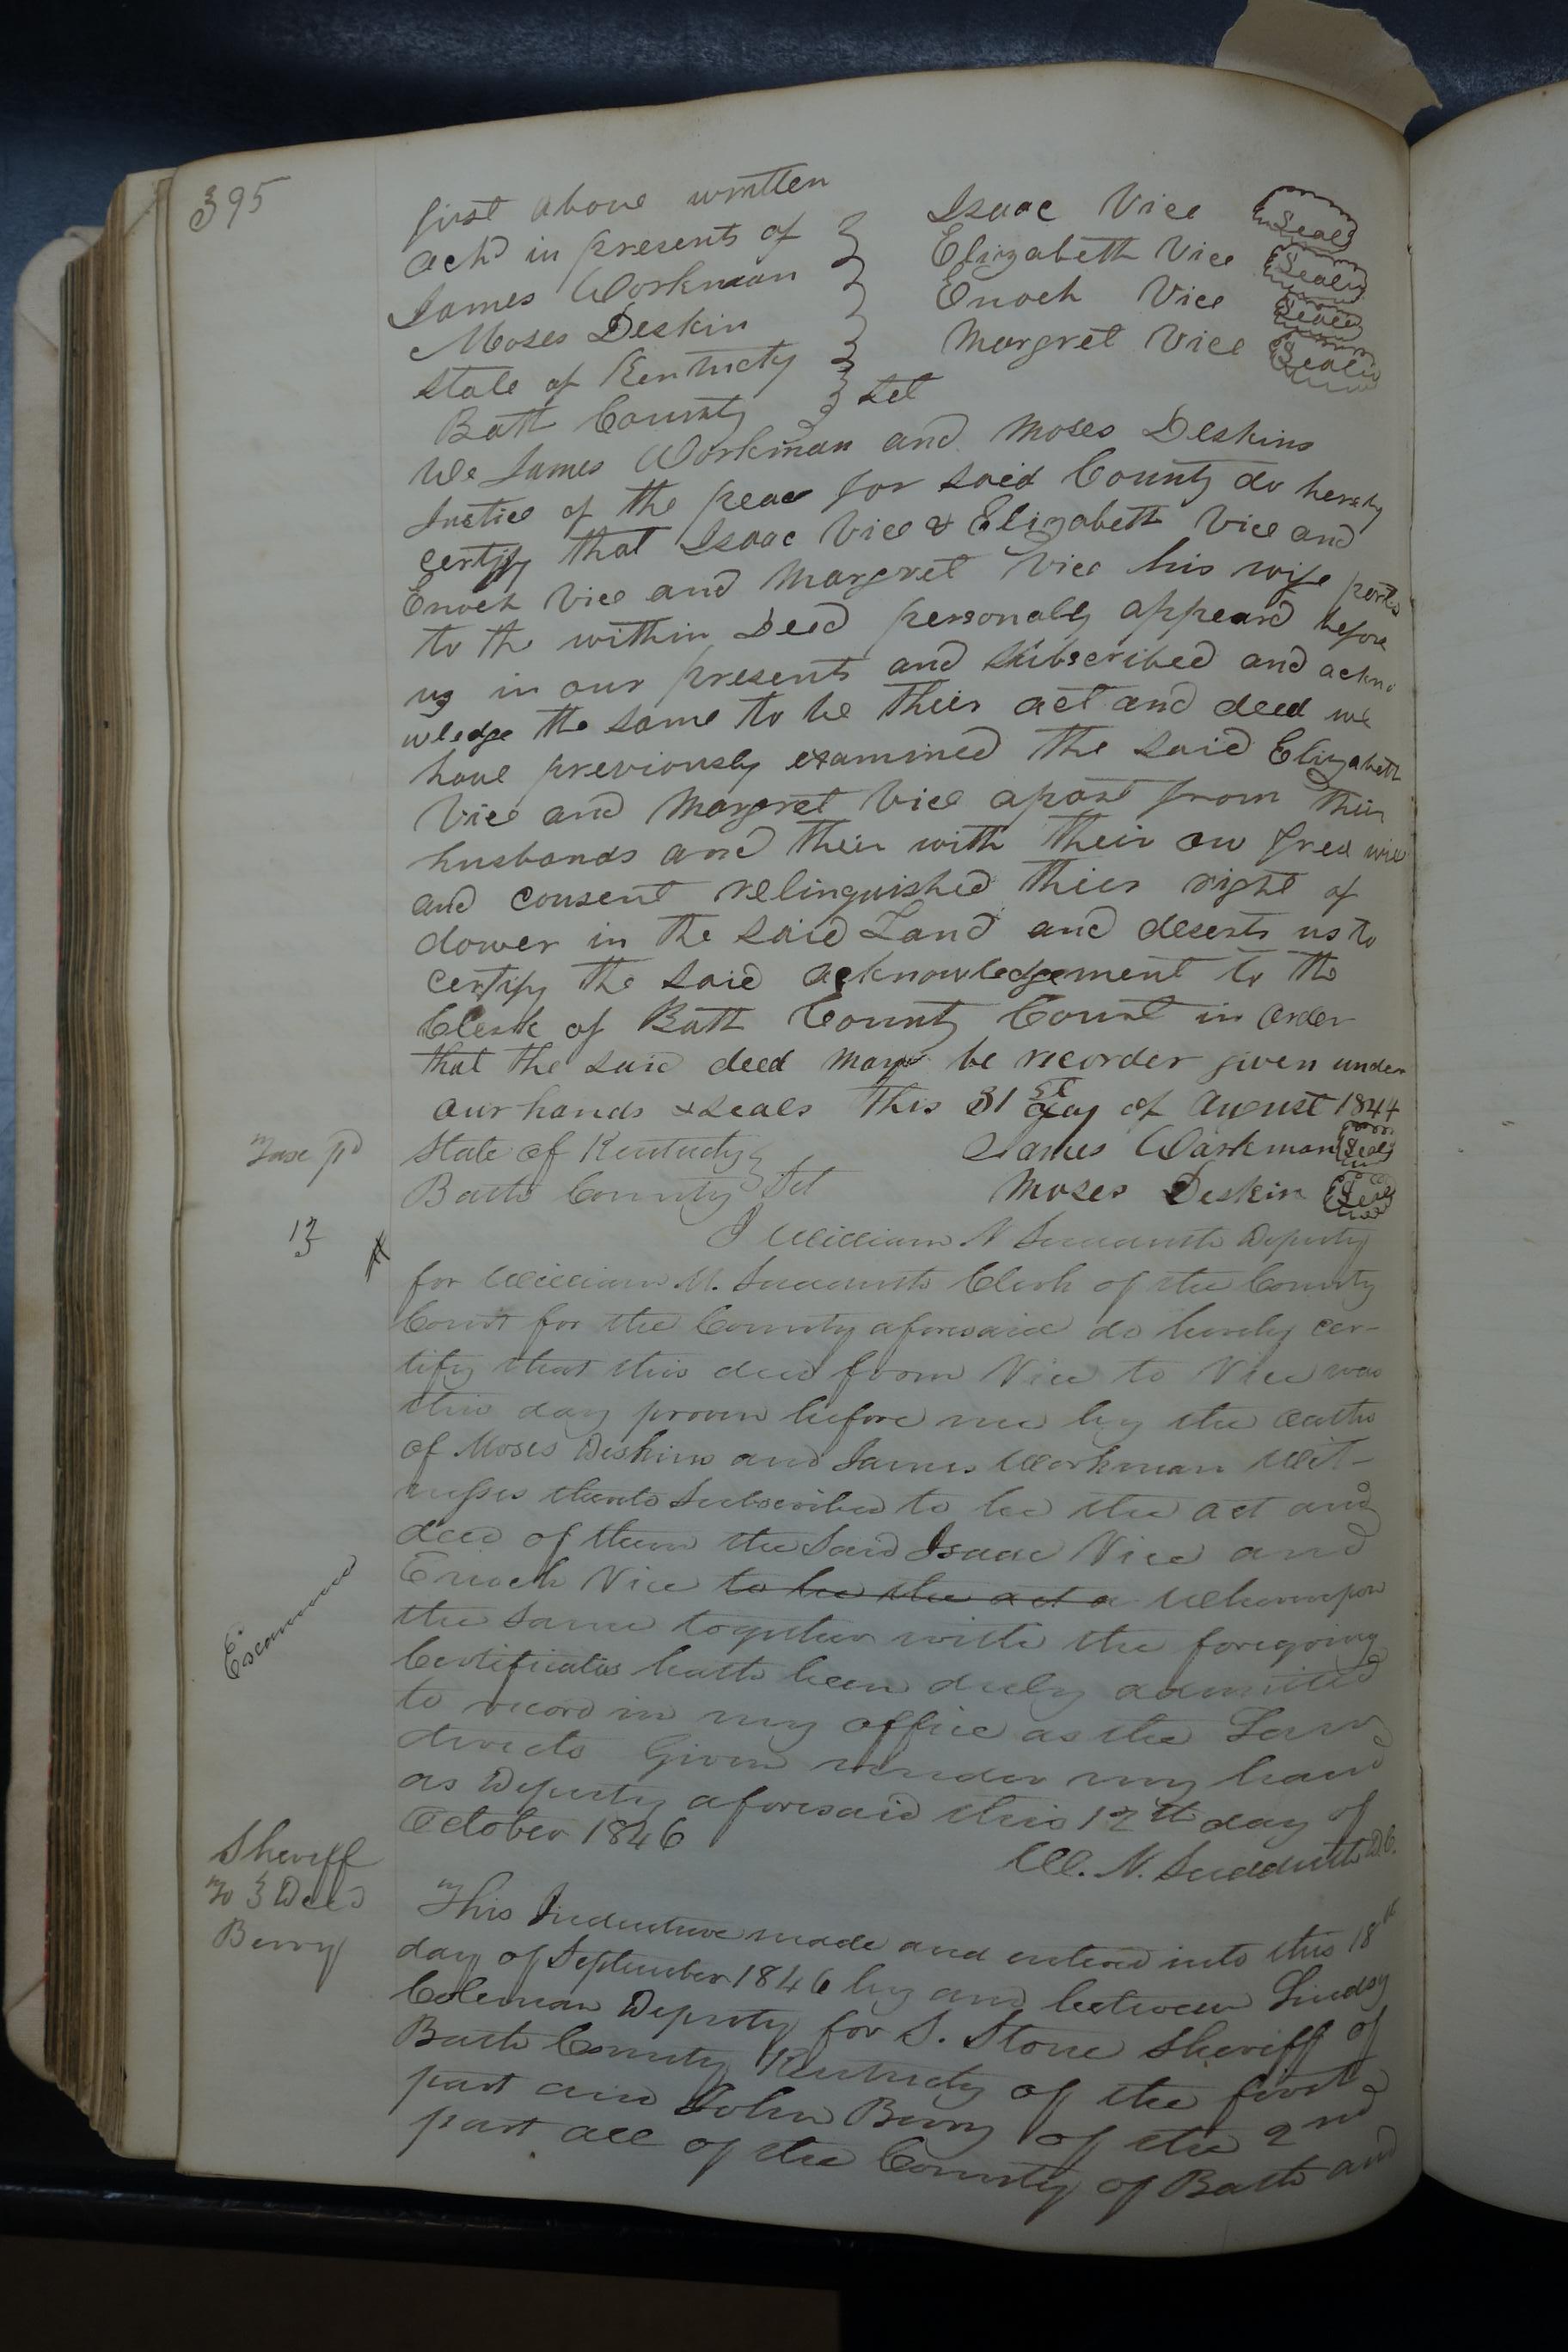 395
first above written Isaac Vice Seal
ackd in presents of Elizabeth Vice Seal
James Workman Enoch Vice Seal
Moses Deskin Margret Vice Seal
State of Kentucky
Bath County Sct
We James Workman and Moses Deskins
Justice of the peace for said County do hereby
certify that Isaac Vice & Elizabeth Vice and
Enoch Vice and Margret Vice his wife
to the within Deed personally appeard before
us in our presents and subscribed and ackno
wledge the same to be their act and deed we
have previously examined the said Elizabeth
Vice and Margret Vice apart from their
husbands and their with their ow free will
and consent relinquished their right of
dower in the said Land and deserts us to
certify the said acknowledgement to the
Clerk of Bath County Court in order
that the said deed may be recorder given under
our hands & seals this 31st day of August 1844
State of Kentucky James Workman Seal
Bath County Sct Moses Deskin Seal
pd
I William N Sudduth Deputy
for William M. Sudduth Clerk of the County
Court for the County aforesaid do hereby cer-
tify that this deed from Vice to Vice was
this day proven before me by the oaths
of Moses Deskins and James Workman Wit-
nesses thereto Subscribed to be the act and
deed of them the Said Isaac Vice and
Enoch Vice to be the act a Whereupon
the Same together with the foregoing
Certificates hath been duly admitted
to record in my office as the Law
directs Given under my hand
as Deputy aforesaid this 12th day of
October 1846
W. N. Sudduth D.C.
Examined
Sheriff
To Deed
Berry
This Indenture made and entered into this 18th
day of September 1846 by and between Lindsy
Coleman Deputy for S. Stone Sheriff of
Bath County Kentucky of the first
part and John Berry of the 2nd
part all of the County of Bath and